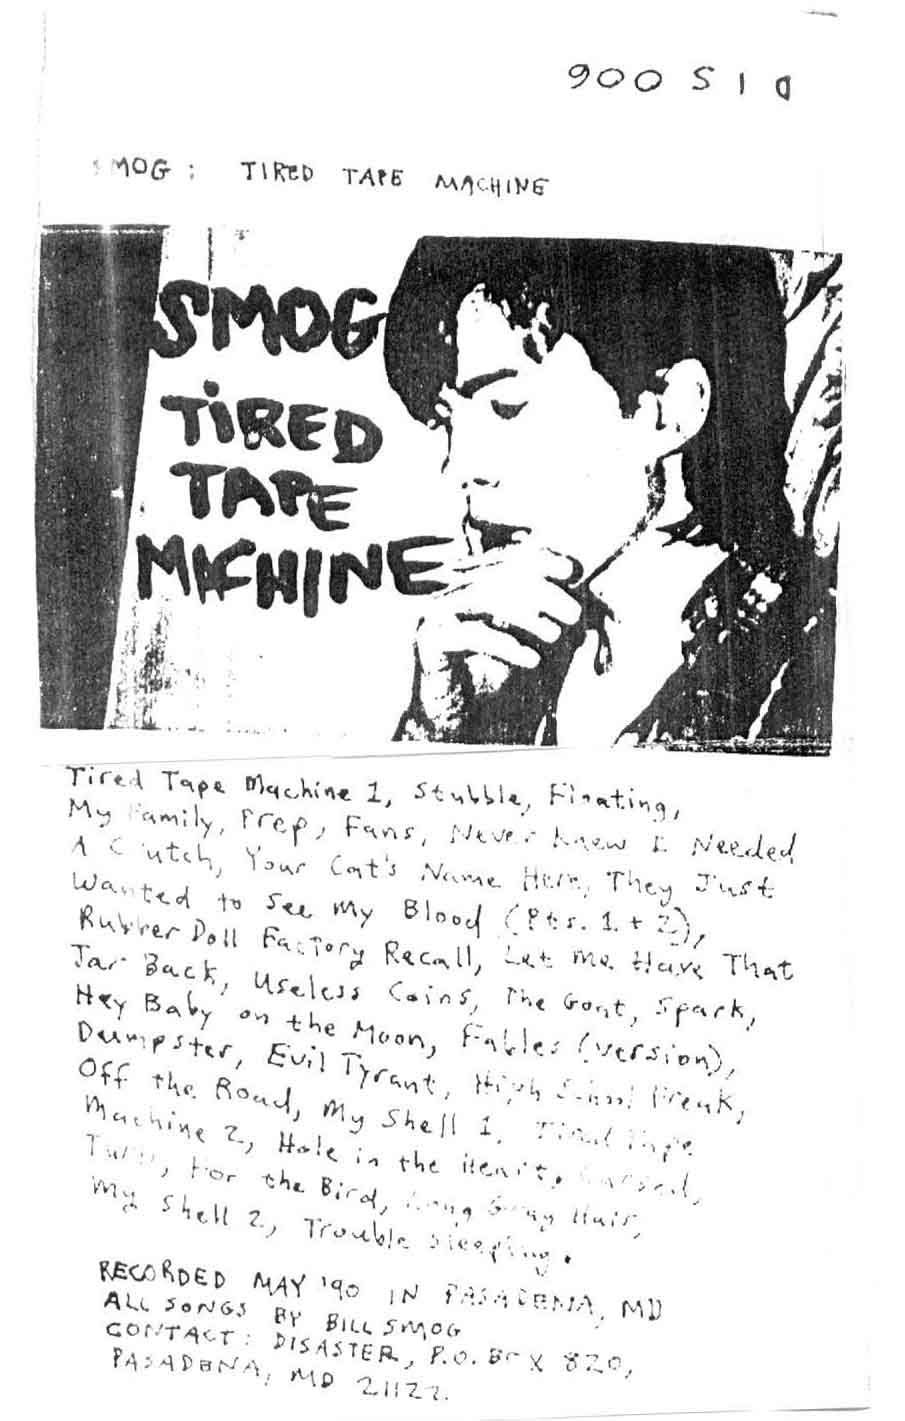 DIS 006
SMOG: TIRED TAPE MACHINE
SMOG
TiRED
TAPE
MACHINE
Tired Tape Machine 1, Stubble, Floating,
My Family, Prep, Fans, Never Knew I Needed
A Clutch, Your Cat's Name Here, They Just
Wanted to See my Blood (Pts. 1 + 2),
Rubber Doll Factory Recall, Let me Have That
Jar Back, Useless Coins, The Goat, Spark,
Hey Baby on the Moon, Fables (version),
Dumpster, Evil Tyrant, High School Freak,
Off the Road, My Shell 1, Tired Tape
Machine 2, Hole in the Heart,
For the Bird, Long Gray Hair,
My Shell 2, Trouble Sleeping.
RECORDED MAY '90 IN PASADENA, MD
ALL SONGS BY BILL SMOG
CONTACT: DISASTER, P.O. Box 820,
PASADENA, MD 21122.